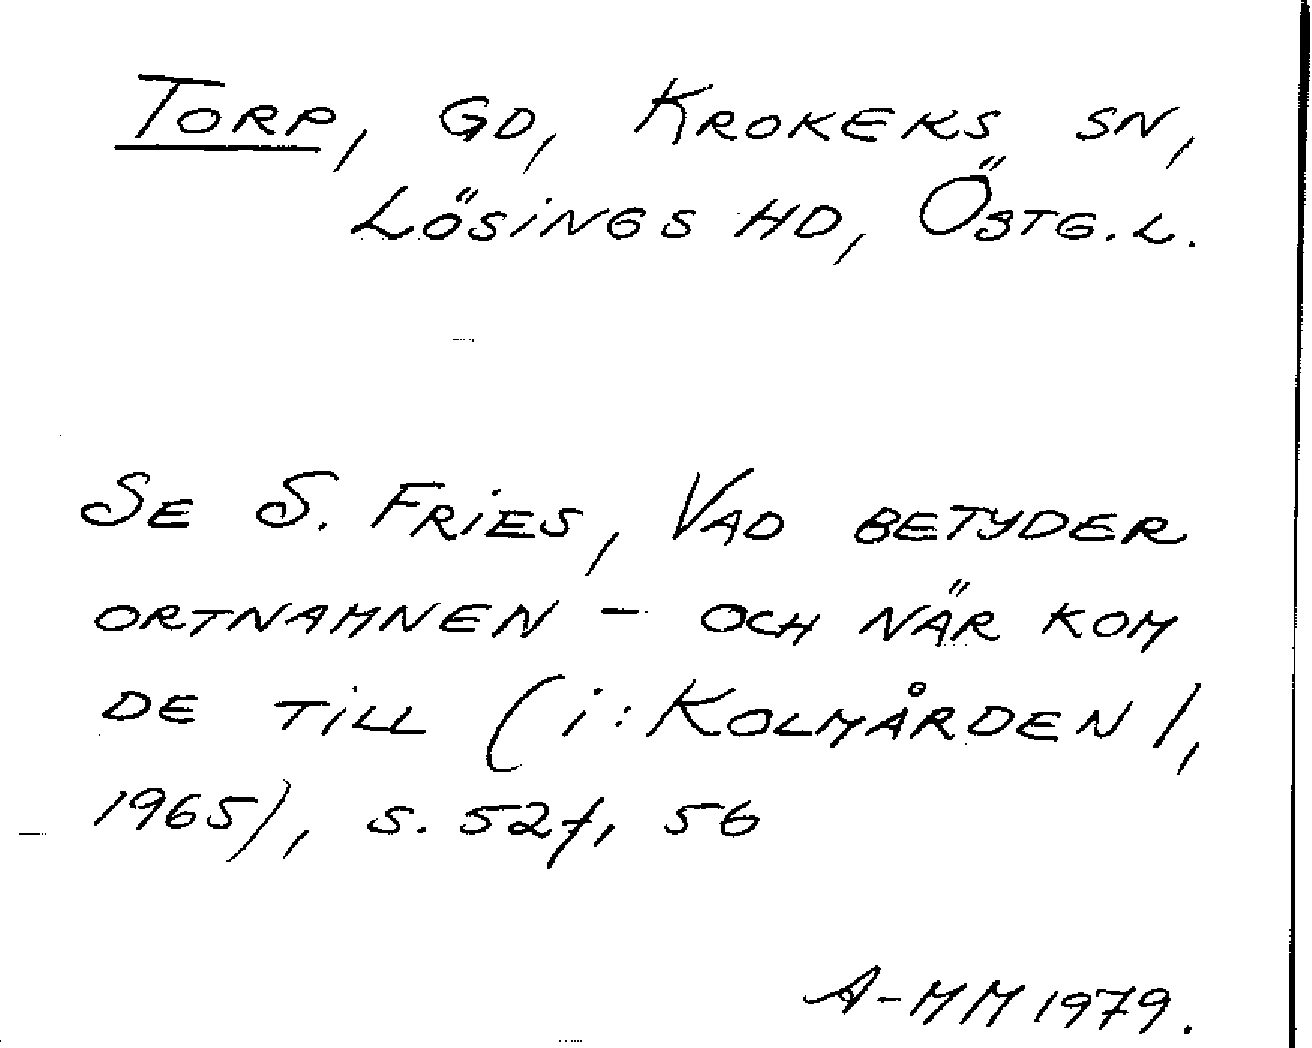 TORP, GD, KROKEKS SN,
LÖSINGS HD, ÖSTG. L.
SE S. FRIES, VAD BETYDER
ORTNAMNEN – OCH NÄR KOM
DE TILL (i: KOLMÅRDEN 1,
1965), S. 52f, 56
A-MM 1979.